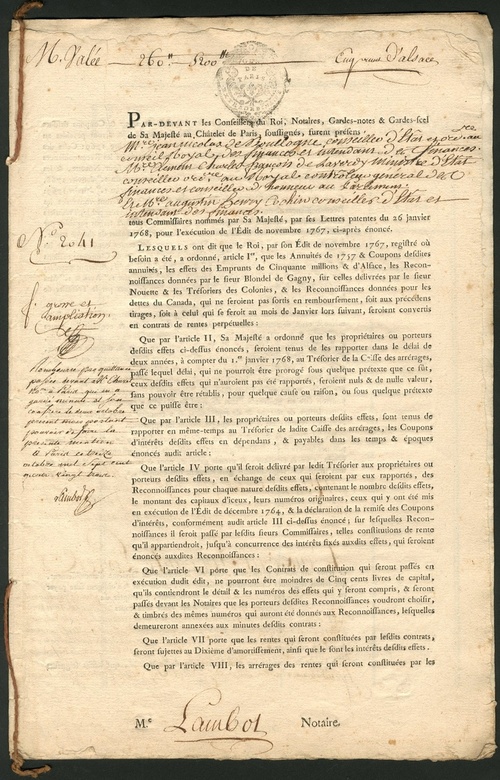 M. Valée — 260 # 5200 # — Emprunt d'alsace
PAR-DEVANT les Conseillers du Roi, Notaires, Gardes-notes & Gardes-scel
de Sa Majesté au Châtelet de Paris, soussignés, furent présens
Mre jean nicolas de Boullogne conseiller d'Etat ord. re
conseil Royal des finances et intendant des finances.
Mre Clement Charles françois de Laverdy Ministre d'Etat
conseiller ord.re au Conseil Royal controleur general des
finances et conseiller d'honneur au Parlement
Et Mre augustin henry Cochin conseiller d'Etat et
intendant des finances
tous Commissaires nommés par Sa Majesté, par ses Lettres patentes du 26 janvier
1768, pour l'exécution de l'Édit de novembre 1767, ci-après énoncé.
N.o 2041
LESQUELS ont dit que le Roi, par son Édit de novembre 1767, registré où
besoin a été, a ordonné, article I.er, que les Annuités de 1757 & Coupons desdites
annuités, les effets des Emprunts de Cinquante millions & d'Alsace, les Recon-
noissances données par le sieur Blondel de Gagny, sur celles délivrées par le sieur
Nouette & les Trésoriers des Colonies, & les Reconnoissances données pour les
dettes du Canada, qui ne seroient pas sortis en remboursement, soit aux précédens
tirages, soit à celui qui se feroit au mois de Janvier lors suivant, seroient convertis
en contrats de rentes perpétuelles :
f. grosse et
ampliation
Que par l'article II, Sa Majesté a ordonné que les propriétaires ou porteurs
desdits effets ci-dessus énoncés, seroient tenus de les rapporter dans le délai de
deux années, à compter du 1.er janvier 1768, au Trésorier de la Caisse des arrérages,
passé lequel délai, qui ne pourroit être prorogé sous quelque prétexte que ce fût,
ceux desdits effets qui n'auroient pas été rapportés, seroient nuls & de nulle valeur,
sans pouvoir être rétablis, pour quelque cause ou raison, ou sous quelque prétexte
que ce puisse être :
Que par l'article III, les propriétaires ou porteurs desdits effets, sont tenus de
rapporter en même-temps au Trésorier de ladite Caisse des arrérages, les Coupons
d'intérêts desdits effets en dépendans, & payables dans les temps & époques
énoncés audit article :
present mois portant
pouvoir de faire la
presente mention
A Paris
octobre mil sept cent
Lambot
Que l'article IV porte qu'il seroit délivré par ledit Trésorier aux propriétaires ou
porteurs desdits effets, en échange de ceux qui seroient par eux rapportés, des
Reconnoissances pour chaque nature desdits effets, contenant le nombre desdits effets,
le montant des capitaux d'iceux, leurs numéros originaires, ceux qui y ont été mis
en exécution de l'Édit de décembre 1764, & la déclaration de la remise des Coupons
d'intérêts, conformément audit article III ci-dessus énoncé; sur lesquelles Recon-
noissances il seroit passé par lesdits sieurs Commissaires, telles constitutions de rente
qu'il appartiendroit, jusqu'à concurrence des intérêts fixés auxdits effets, qui seroient
énoncés auxdites Reconnoissances :
Que l'article VI porte que les Contrats de constitution qui seront passés en
exécution dudit édit, ne pourront être moindres de Cinq cents livres de capital,
qu'ils contiendront le détail & les numéros des effets qui y seront compris, & seront
passés devant les Notaires que les porteurs desdites Reconnoissances voudront choisir,
& timbrés des mêmes numéros qui auront été donnés aux Reconnoissances, lesquelles
demeureront annexées aux minutes desdits contrats :
Que l'article VII porte que les rentes qui seront constituées par lesdits contrats,
seront sujettes au Dixième d'amortissement, ainsi que le sont les intérêts desdits effets.
Que par l'article VIII, les arrérages des rentes qui seront constituées par les
M.e Lambot Notaire.